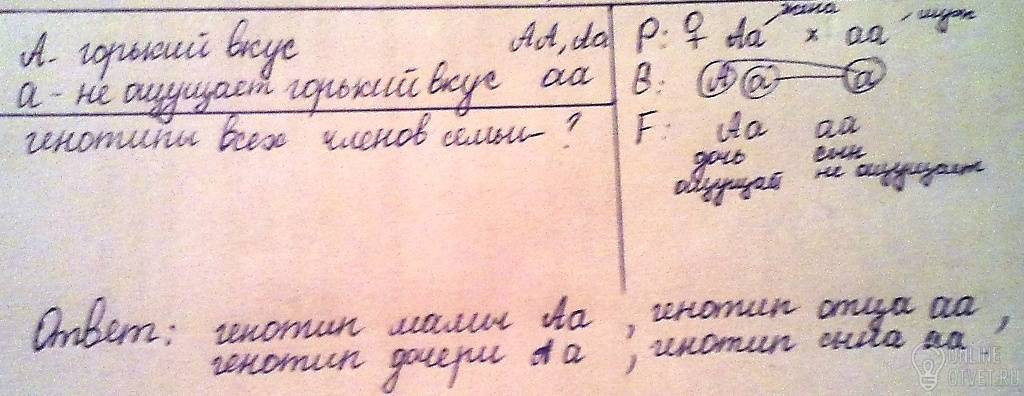 А - горький вкус АА, Аа
а - не ощущает горький вкус аа
генотипы всех членов семьи - ?
жена муж
Р: ♀ Аа х аа
В: А а а
F: Аа аа
дочь сын
ощущает не ощущает
Ответ: генотип мамы Аа ; генотип отца аа ,
генотип дочери Аа ; генотип сына аа
ONLINE
OTVET.RU